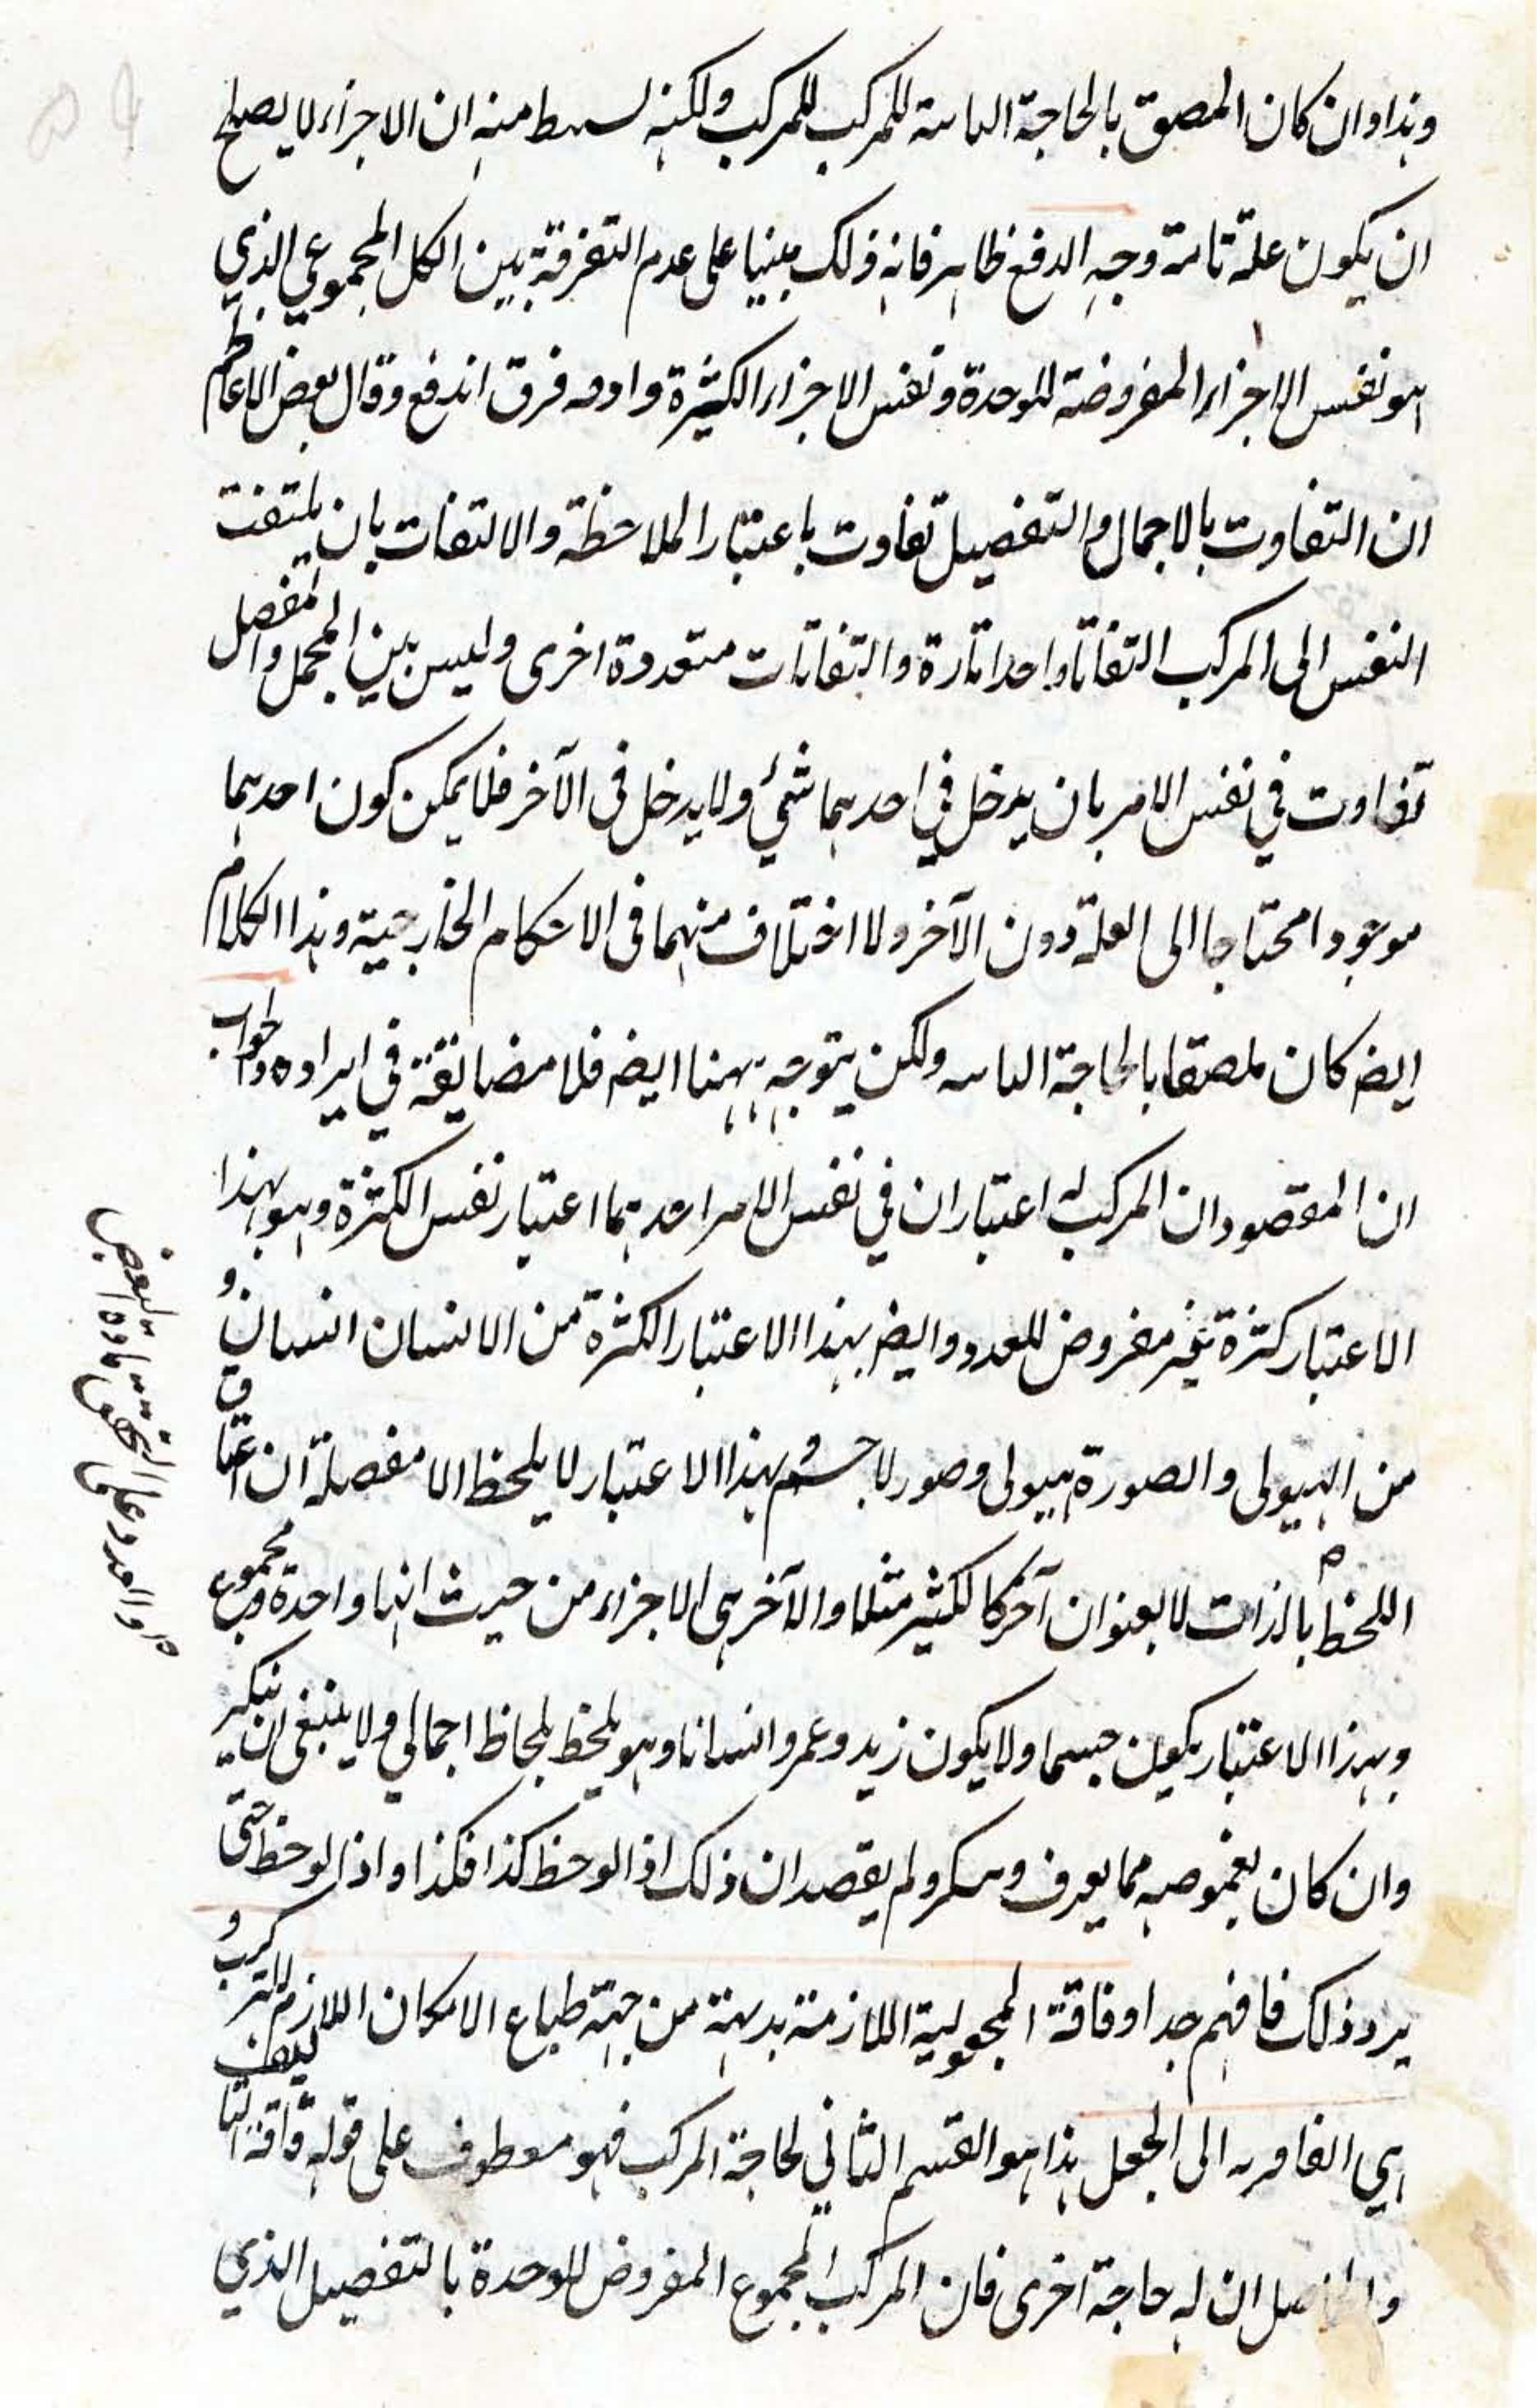 وهذا وان كان الصق بالحاجة الثانية للمركب للمركب ولكنه يستنبط منه ان الاجزاء لا يصلح
ان يكون علة تامة وجه الدفع ظاهر فانه ذلك مبنيا على عدم التفرقة بين الكل المجموعي الذي
هو نفس الاجزاء المفروضة للوحدة ونفس الاجزاء الكثيرة واذا فرق اندفع وقال بعض الاعاظم
ان التفاوت بالاجمال والتفصيل تفاوت باعتبار الملاحظة والالتفات بان يلتفت
النفس الى المركب التفاتا واحدا تارة والتفاتات متعددة اخرى وليس بين المجمل والمفصل
تفاوت في نفس الامر بان يدخل في احدهما شئ ولا يدخل في الآخر فلا يمكن كون احدهما
موجودا محتاجا الى العلة دون الآخر ولا اختلاف منهما في الاحكام الخارجية وهذا الكلام
ايضا كان ملصقا بالحاجة الثانية ولكن يتوجه ههنا ايضا فلا مضايقة في ايراده والجواب
ان المقصود ان المركب له اعتباران في نفس الامر احدهما اعتبار نفس الكثرة وهو بهذا
الاعتبار كثرة غير مفروض للعدد وايضا بهذا الاعتبار الكثرة من الانسان انسان و
من الهيولى والصورة هيولى وصورة لا جسم وبهذا الاعتبار لا يلحظ الا مفصلة ان اعتنا ق
اللحظ بالذات لا بعنوان آخر كالكثير مثلا والآخر هي الاجزاء من حيث انها واحدة ومجموع
وبهذا الاعتبار يكون جسما ولا يكون زيد وعمرو انسانا وهو يلحظ بلحاظ اجمالي ولا ينبغي ان ينكر
وان كان بغموضه مما يعرف وينكر ولم يقصد ان ذلك اذا لوحظ كذا فكذا واذا لوحظ حتى
يرد ذلك فافهم جدا وفاقة المجعولية اللازمة بديهة من جهة طباع الامكان اللازم للتركيب و
هي الفاقرة الى الجعل هذا هو القسم الثاني لحاجة المركب فهو معطوف على قوله فاقة التأليف
والحاصل ان له حاجة اخرى فان المركب المجموع المفروض للوحدة بالتفصيل الذي